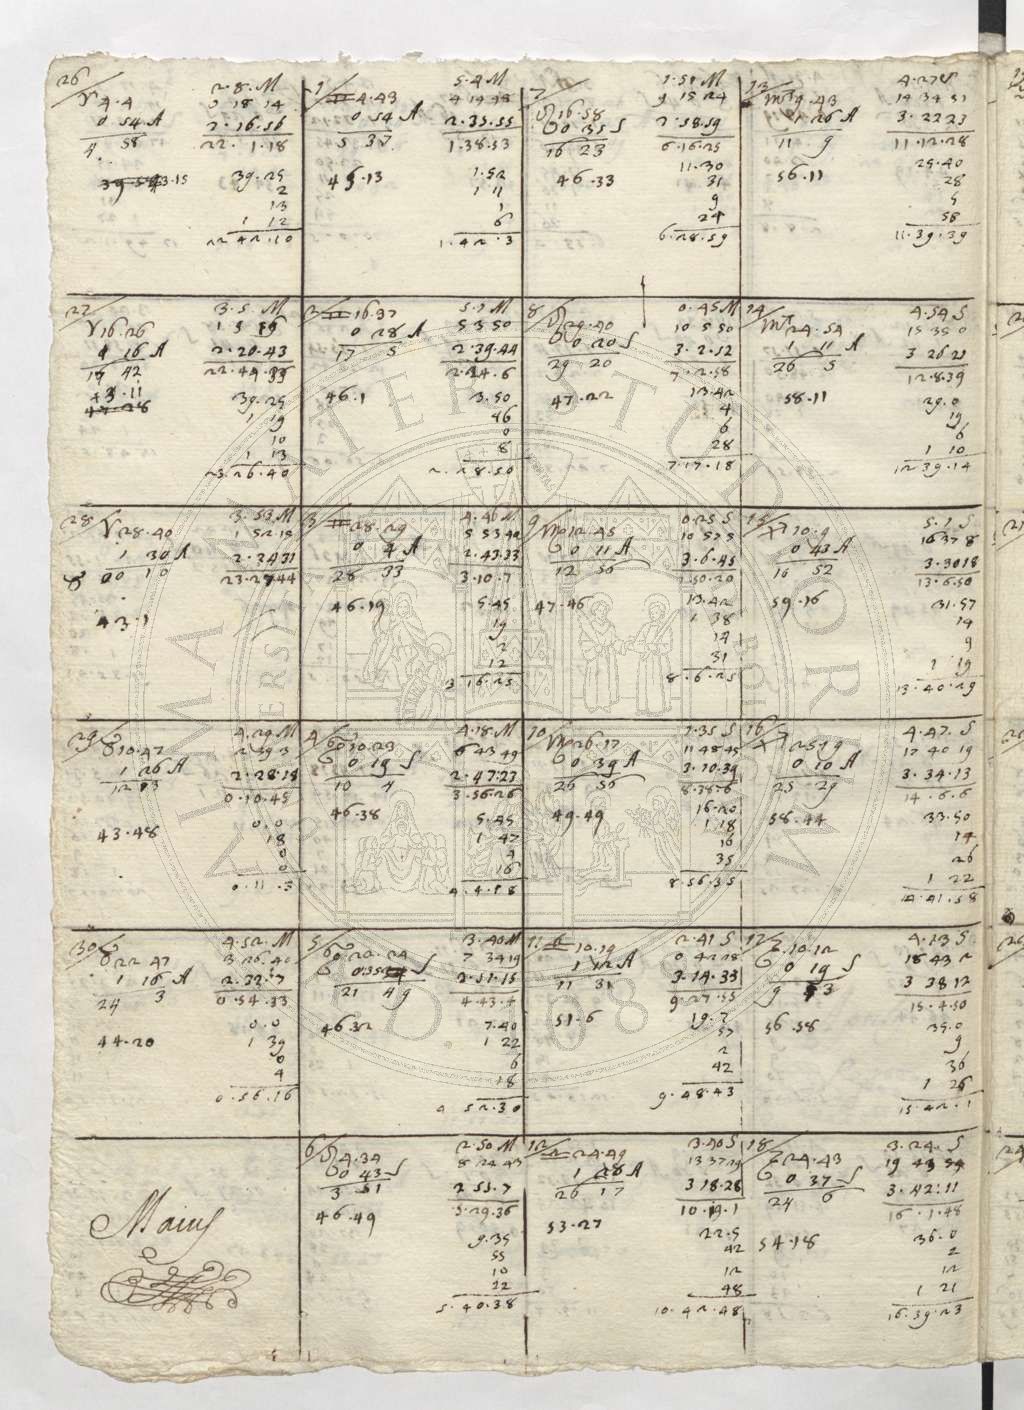 26
♈ 4.4
0 54 A
4 58
43.15
2.8.M
0 18 14
2.16.56
22.1.18
39.25
2
13
1 12
22 42.10
1
♊ 4.43
0 54 A
5 37
45.13
5.4 M
4 19 43
2.35.55
1.38.53
1.52
1 11
1
6
1.42.3
7
♌ 16.58
0 35 S
16 23
46.33
1.51 M
9 15 24
2.58.59
6.16.25
11.30
31
9
24
6.28.59
13
♏ 9.43
1 26 A
11 9
56.11
4.27 S
14 34 51
3.22 23
11.12.28
25.40
28
5
58
11.39.39
27
♈ 16.26
1 16 A
17 42
43.11
3.5 M
1 5 19
2.20.43
22.44.33
39.25
1 19
10
1 13
23.26.40
2
♊ 16.37
0 28 A
17 5
46.1
5.1 M
5 3 50
2.39.44
2.24.6
3.50
46
0
8
2.28.50
8
♌ 29.40
0 20 S
29 20
47.22
0.45 M
10 5 50
3.2.52
7.2.58
13.42
4
6
28
7.17.18
14
♏ 24.54
1 11 A
26 5
58.11
4.54 S
15 35 0
3 26 21
12.8.39
29.0
19
6
1 10
12 39.14
28
♈ 28.40
1 30 A
♉ 00 10
43.1
3.53 M
1 52 15
2.24 31
23.27.44
3
♊ 28.29
0 4 A
28 33
46.19
4.46 M
5 53 42
2.43.33
3.10.7
5.45
19
2
12
3 16.25
9
♍ 12.45
0 11 A
12 56
47.46
0.25 S
10 57 5
3.6.45
13.42
1 38
14
31
8.6.25
15
♐ 10.9
0 43 A
16 52
59.16
5.1 S
16 37 8
3.30 18
13.6.50
31.57
14
9
1 19
13.40.29
29
♉ 10.47
1 26 A
12 13
43.48
4.29 M
2 39 3
2.28.18
0.10.45
0.0
18
0
0
0.11.3
4
♋ 10.23
0 19 S
10 4
46.38
4.18 M
6 43 49
2.47.23
3.56.26
5.45
1 47
4
16
4.4.18
10
♍ 26.17
0 39 A
26 56
49.49
1.35 S
11 48 45
3.10.39
8.38.6
16.20
1 18
16
35
8.56.35
16
♐ 25 19
0 10 A
25 29
58.44
4.47. S
17 40 19
3.34.13
14.6.6
33.50
14
26
1 22
14.41.58
30
♉ 22 47
1 16 A
24 3
44.20
4.52. M
3 26.40
2.32.7
0.54.33
0.0
1 39
0
4
0.56.16
5
♋ 22.24
S
21 49
46.32
3.40 M
7 34 19
2.51.15
4.43.4
7.40
1 22
6
18
4 52.30
11
♎ 10.19
1 12 A
11 31
51.6
2.41 S
0 42 28
3.14.33
9.27.55
19.7
57
2
42
9.48.43
17
♑ 10.12
0 19 S
9 53
56.58
4.13 S
18 43 2
3 38 12
15.4.50
35.0
9
36
1 26
15.42.1
Maius
6
♌ 4.34
0 43 S
3 51
46.49
2.50 M
8 24 43
2 55.7
5.29.36
9.35
55
10
22
5.40.38
12
♎ 24.49
1 28 A
26 17
53.27
3.40 S
13 37 29
3 18.28
10.19.1
22.5
42
12
48
10.42.48
18
♑ 24.43
0 37 S
24 6
54.18
3.24. S
19 43 59
3.42.11
16.1.48
36.0
2
12
1 21
16.39.23